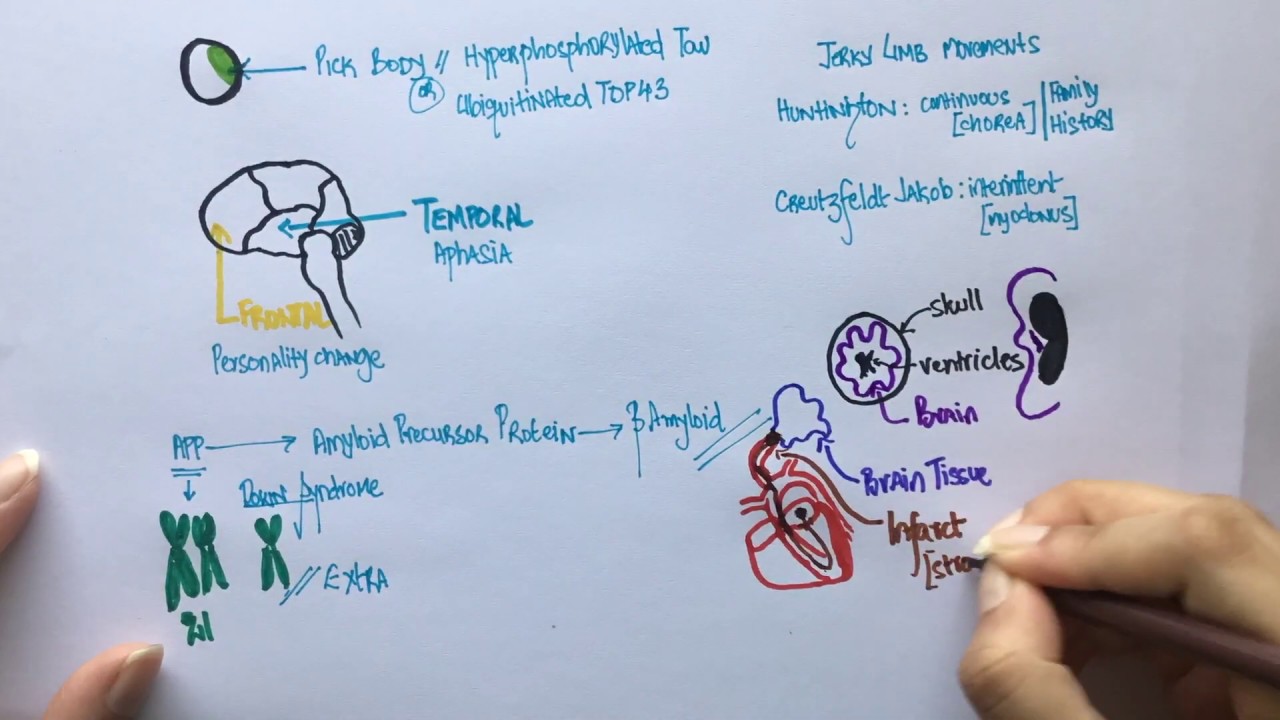 PICK BODY // HYPERPHOSPHORYLATED TOW
OR
UBIQUITINATED TOP43
TEMPORAL
APHASIA
FRONTAL
PERSONALITY CHANGE
APP → AMYLOID PRECURSOR PROTEIN → β AMYLOID
DOWN SYNDROME
// EXTRA
21
JERKY LIMB MOVEMENTS
HUNTINGTON: CONTINUOUS
[CHOREA]
FAMILY
HISTORY
CREUTZFELDT JAKOB: INTERMITTENT
[MYOCLONUS]
skull
ventricles
BRAIN
BRAIN TISSUE
INFARCT
[STRO